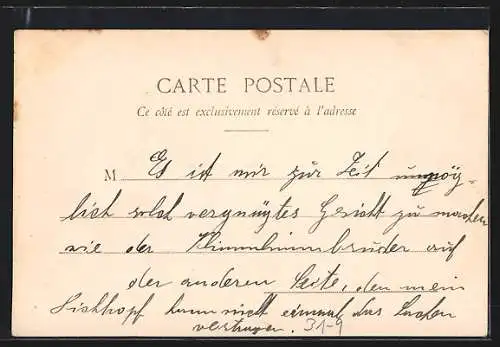 CARTE POSTALE
Ce côté est exclusivement réservé à l'adresse
M Es ist mir zur Zeit unmög-
lich solch vergnügtes Gesicht zu machen
wie der Klimmbimmbruder auf
der anderen Seite, den mein
kann nicht einmal das Lachen
vertragen. 31-9